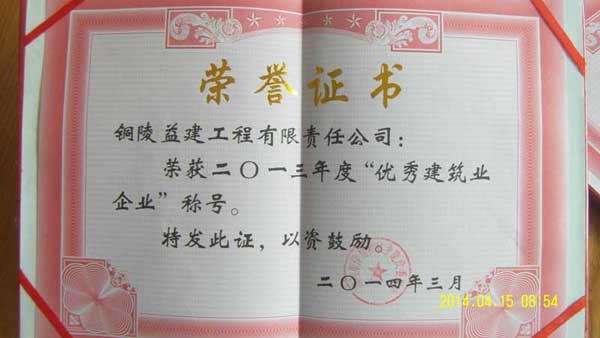 荣誉证书
铜陵益建工程有限责任公司：
荣获二〇一三年度“优秀建筑业
企业”称号。
特发此证，以资鼓励。
二〇一四年三月
2014.04.15 08:54